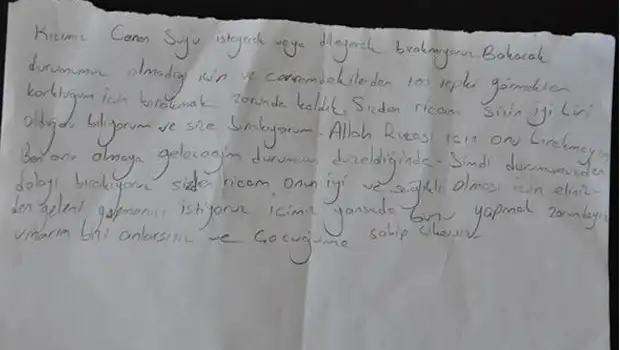 Kızımız Canan Suyu isteyerek veya dileyerek bırakmıyoruz. Bakacak
durumumuz olmadığı için ve çevremdekilerden tepki görmekten
korktuğum için bırakmak zorunda kaldık. Sizden ricam Sizin iyi biri
olduğunu biliyorum ve size bırakıyorum. Allah Rızası için onu bırakmayın
Ben onu almaya geleceğim durumum düzeldiğinde. Şimdi durumumuzdan
dolayı bırakıyoruz sizden ricam onun iyi ve sağlıklı olması için eliniz-
den geleni yapmanızı istiyoruz içimiz yansada bunu yapmak zorundayız
umarım bizi anlarsınız ve çocuğuma sahip çıkarsınız